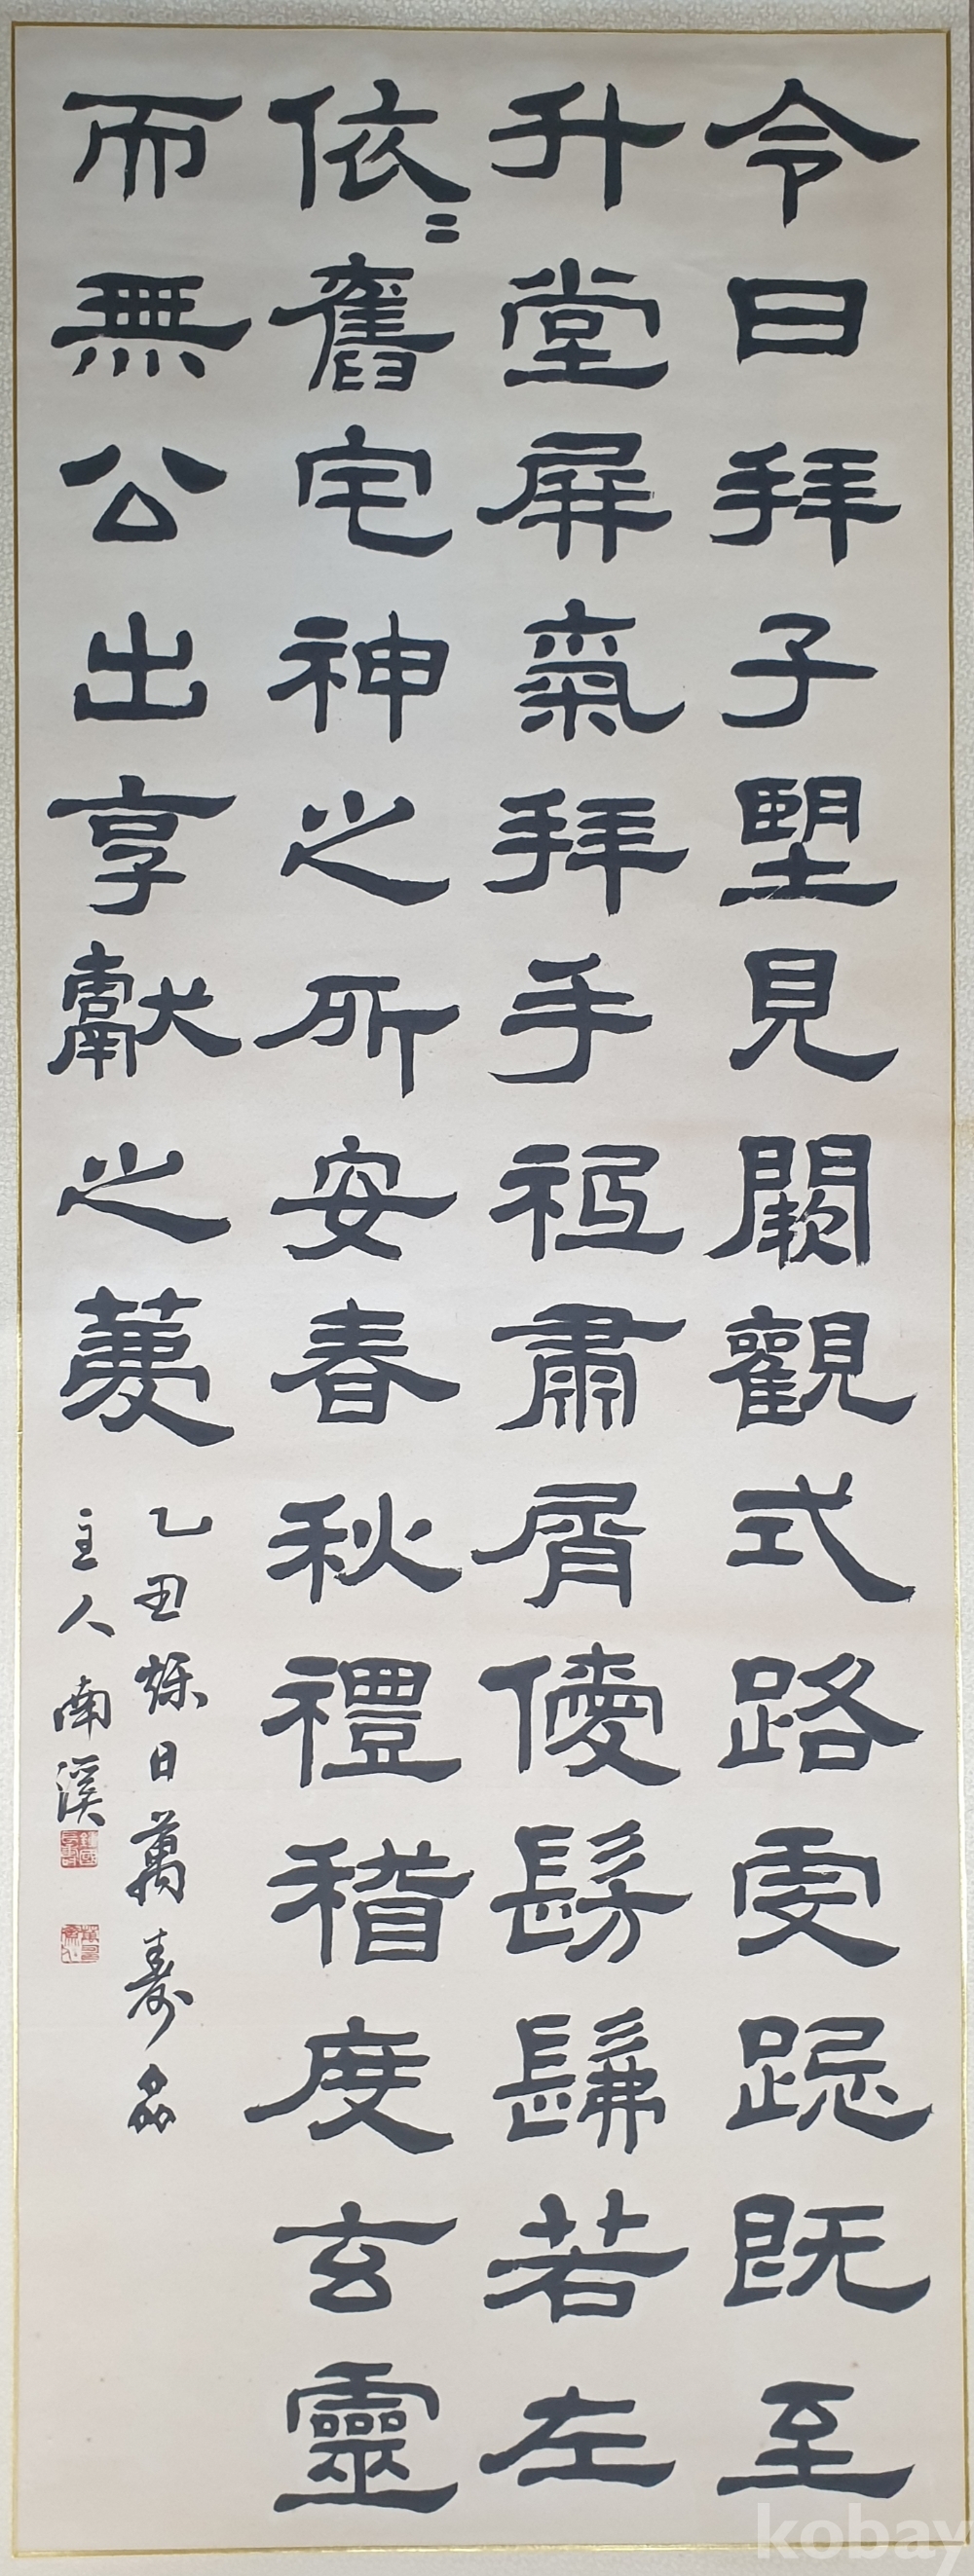 令日拜孔子望見闕觀式路虔跽既至
升堂屏氣拜手祗肅屑僾髣髴若在
依〻舊宅神之所安春秋禮稽度玄靈
而無公出享獻之薦
乙丑秋日萬壽
主人南溪
kobay